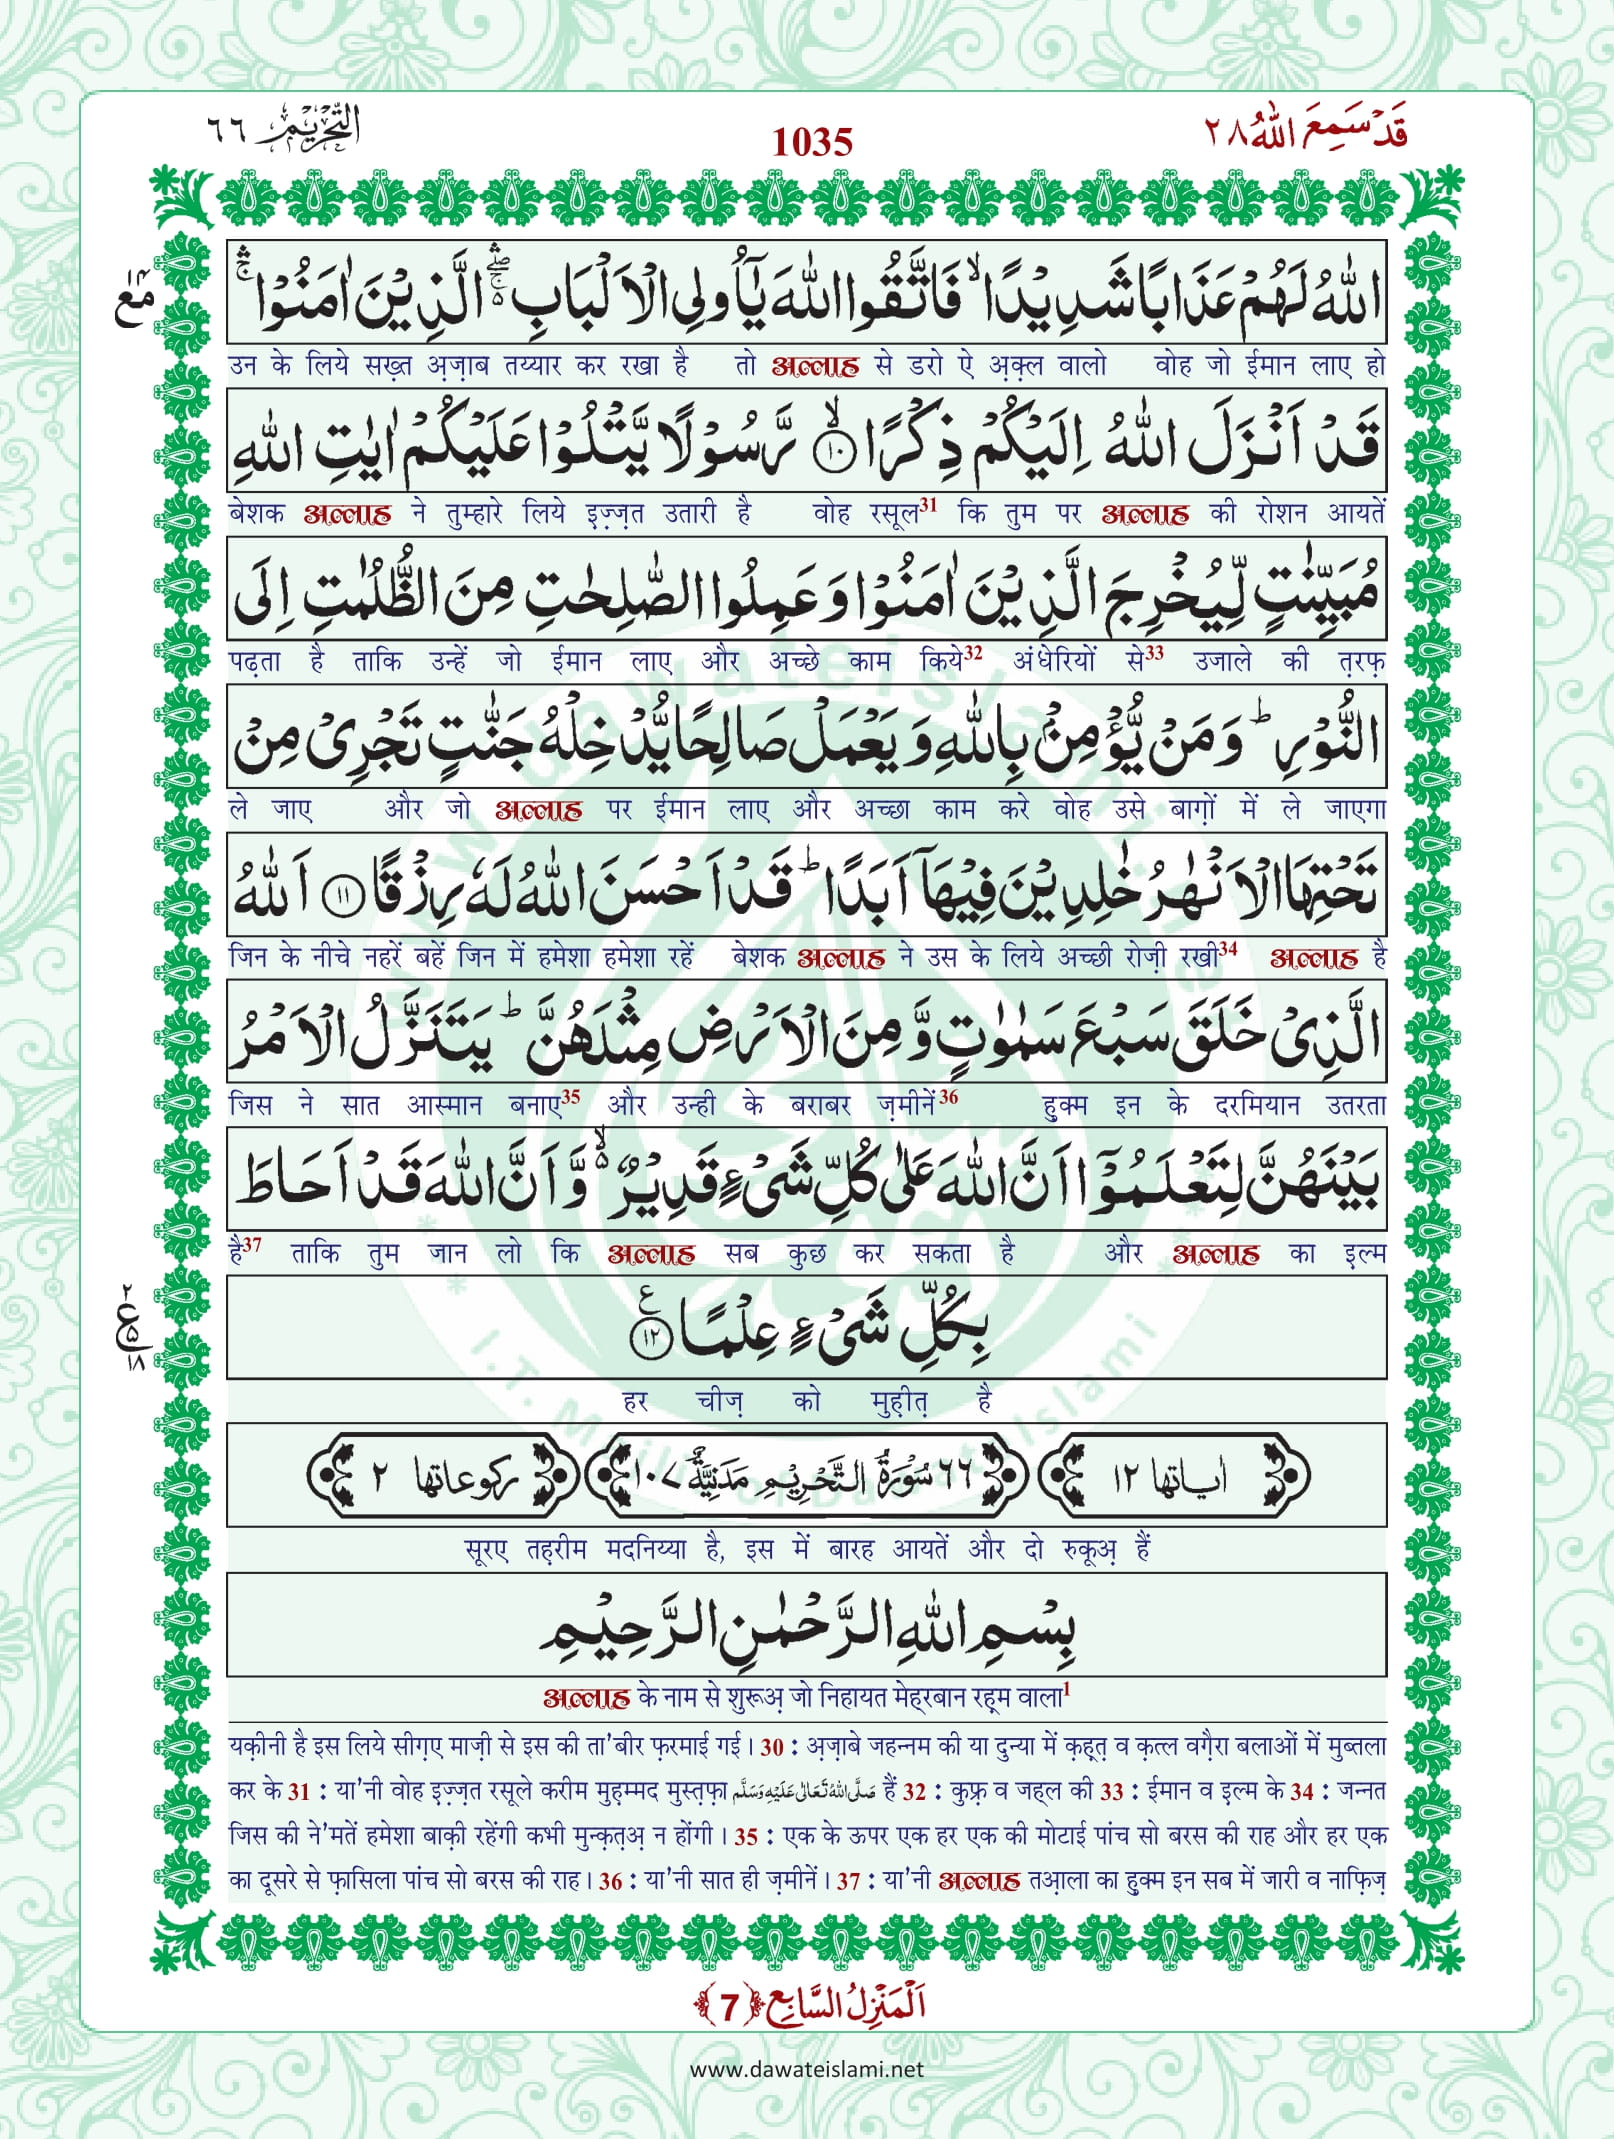 التحريم ٦٦
1035
قَدْ سَمِعَ اللّٰهُ ٢٨
اللّٰهُ لَهُمْ عَذَابًا شَدِيْدًا ۙ فَاتَّقُوا اللّٰهَ يٰۤاُولِى الْاَلْبَابِ ۛۚۖ الَّذِيْنَ اٰمَنُوْا ۛؕ
उन के लिये सख़्त अ़ज़ाब तय्यार कर रखा है तो अल्लाह से डरो ऐ अ़क़्ल वालो वोह जो ईमान लाए हो
قَدْ اَنْزَلَ اللّٰهُ اِلَيْكُمْ ذِكْرًا ۙ۝١٠ رَّسُوْلًا يَّتْلُوْا عَلَيْكُمْ اٰيٰتِ اللّٰهِ
बेशक अल्लाह ने तुम्हारे लिये इ़ज़्ज़त उतारी है वोह रसूल31 कि तुम पर अल्लाह की रोशन आयतें
مُبَيِّنٰتٍ لِّيُخْرِجَ الَّذِيْنَ اٰمَنُوْا وَعَمِلُوا الصّٰلِحٰتِ مِنَ الظُّلُمٰتِ اِلَى
पढ़ता है ताकि उन्हें जो ईमान लाए और अच्छे काम किये32 अंधेरियों से33 उजाले की त़रफ़
النُّوْرِ ؕ وَمَنْ يُّؤْمِنْۢ بِاللّٰهِ وَيَعْمَلْ صَالِحًا يُّدْخِلْهُ جَنّٰتٍ تَجْرِىْ مِنْ
ले जाए और जो अल्लाह पर ईमान लाए और अच्छा काम करे वोह उसे बाग़ों में ले जाएगा
تَحْتِهَا الْاَنْهٰرُ خٰلِدِيْنَ فِيْهَاۤ اَبَدًا ؕ قَدْ اَحْسَنَ اللّٰهُ لَهٗ رِزْقًا ۝١١ اَللّٰهُ
जिन के नीचे नहरें बहें जिन में हमेशा हमेशा रहें बेशक अल्लाह ने उस के लिये अच्छी रोज़ी रखी34 अल्लाह है
الَّذِىْ خَلَقَ سَبْعَ سَمٰوٰتٍ وَّمِنَ الْاَرْضِ مِثْلَهُنَّ ؕ يَتَنَزَّلُ الْاَمْرُ
जिस ने सात आस्मान बनाए35 और उन्ही के बराबर ज़मीनें36 हुक्म इन के दरमियान उतरता
بَيْنَهُنَّ لِتَعْلَمُوْۤا اَنَّ اللّٰهَ عَلٰى كُلِّ شَىْءٍ قَدِيْرٌ ۙ وَّاَنَّ اللّٰهَ قَدْ اَحَاطَ
है37 ताकि तुम जान लो कि अल्लाह सब कुछ कर सकता है और अल्लाह का इ़ल्म
بِكُلِّ شَىْءٍ عِلْمًا ۝١٢ ع
हर चीज़ को मुह़ीत़ है
اٰياتها ١٢ ٦٦ سُوْرَةُ التَّحْرِيْمِ مَدَنِيَّةٌ ١٠٧ ركوعاتها ٢
सूरए तह़रीम मदनिय्या है, इस में बारह आयतें और दो रुकूअ़ हैं
بِسْمِ اللّٰهِ الرَّحْمٰنِ الرَّحِيْمِ
अल्लाह के नाम से शुरूअ़ जो निहायत मेह्‌रबान रह़्‌म वाला1
यक़ीनी है इस लिये सीग़ए माज़ी से इस की ता'बीर फ़रमाई गई। 30 : अ़ज़ाबे जहन्नम की या दुन्या में क़ह़्त़ व क़त्ल वग़ैरा बलाओं में मुब्तला
कर के 31 : या'नी वोह इ़ज़्ज़त रसूले करीम मुह़म्मद मुस्त़फ़ा صَلَّى اللّٰهُ تَعَالٰى عَلَيْهِ وَسَلَّم हैं 32 : कुफ़्र व जह्‌ल की 33 : ईमान व इ़ल्म के 34 : जन्नत
जिस की ने'मतें हमेशा बाक़ी रहेंगी कभी मुन्क़त़अ़ न होंगी। 35 : एक के ऊपर एक हर एक की मोटाई पांच सो बरस की राह और हर एक
का दूसरे से फ़ासिला पांच सो बरस की राह। 36 : या'नी सात ही ज़मीनें। 37 : या'नी अल्लाह तआ़ला का हुक्म इन सब में जारी व नाफ़िज़
اَلْمَنْزِلُ السَّابِع ﴿7﴾
www.dawateislami.net